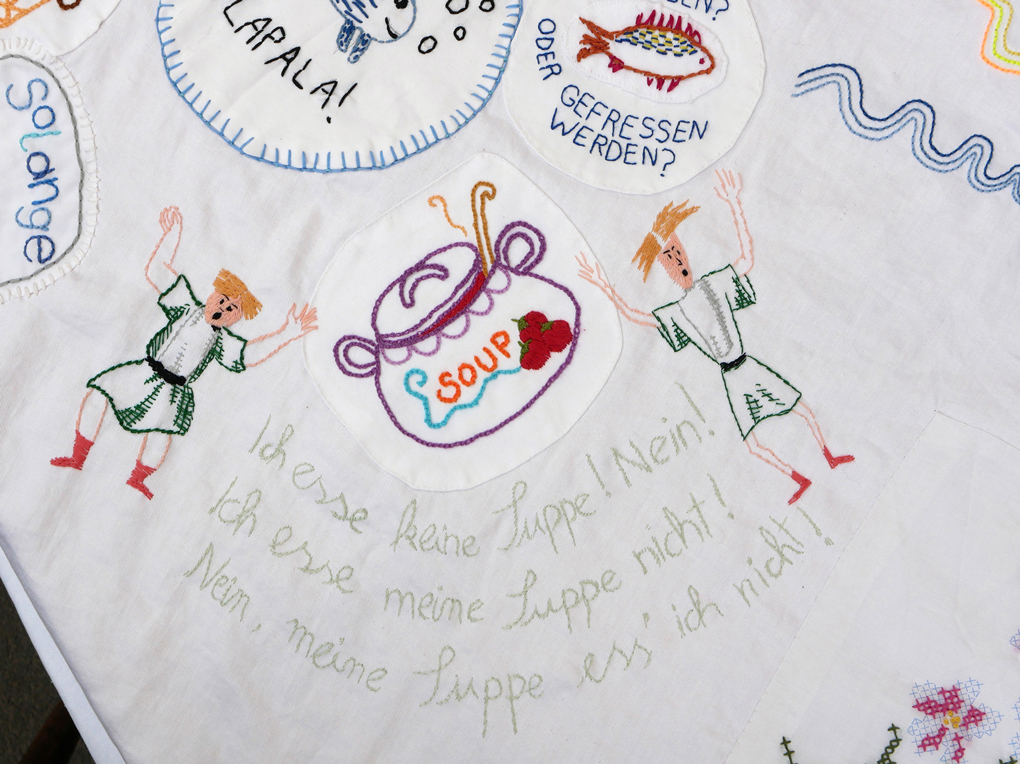 LAPALA!
ODER
GEFRESSEN
WERDEN?
Solange
SOUP
Ich esse keine Suppe! Nein!
Ich esse meine Suppe nicht!
Nein, meine Suppe ess' ich nicht!